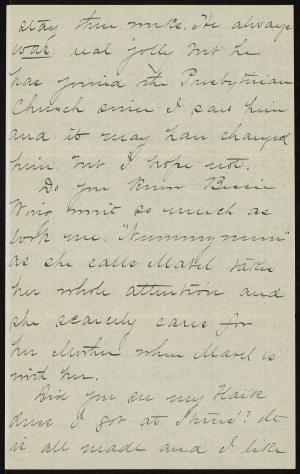 stay three weeks. He always
was real jolly but he
has joined the Presbyterian
Church since I saw him
and it may have changed
him, but I hope not.
Do you know Bessie
Wing won't so much as
look me. "Nummy mum"
as she calls Mabel takes
her whole attention and
she scarcely cares for
her Mother when Mabel is
with her.
Did you see my
dress I got at It
is all made and I like